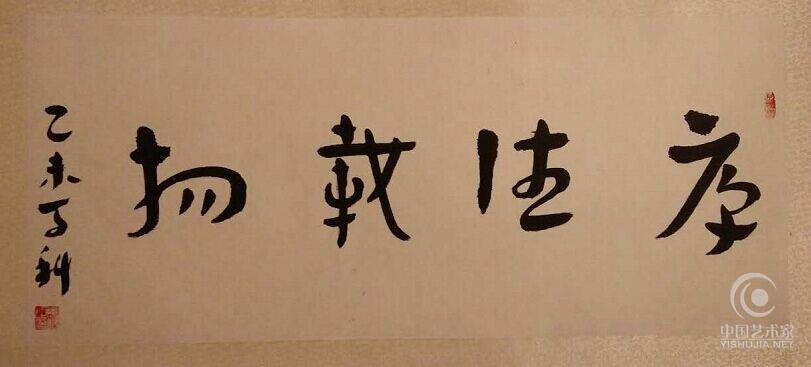 厚德载物
乙未
中国艺术家
YISHUJIA.NET